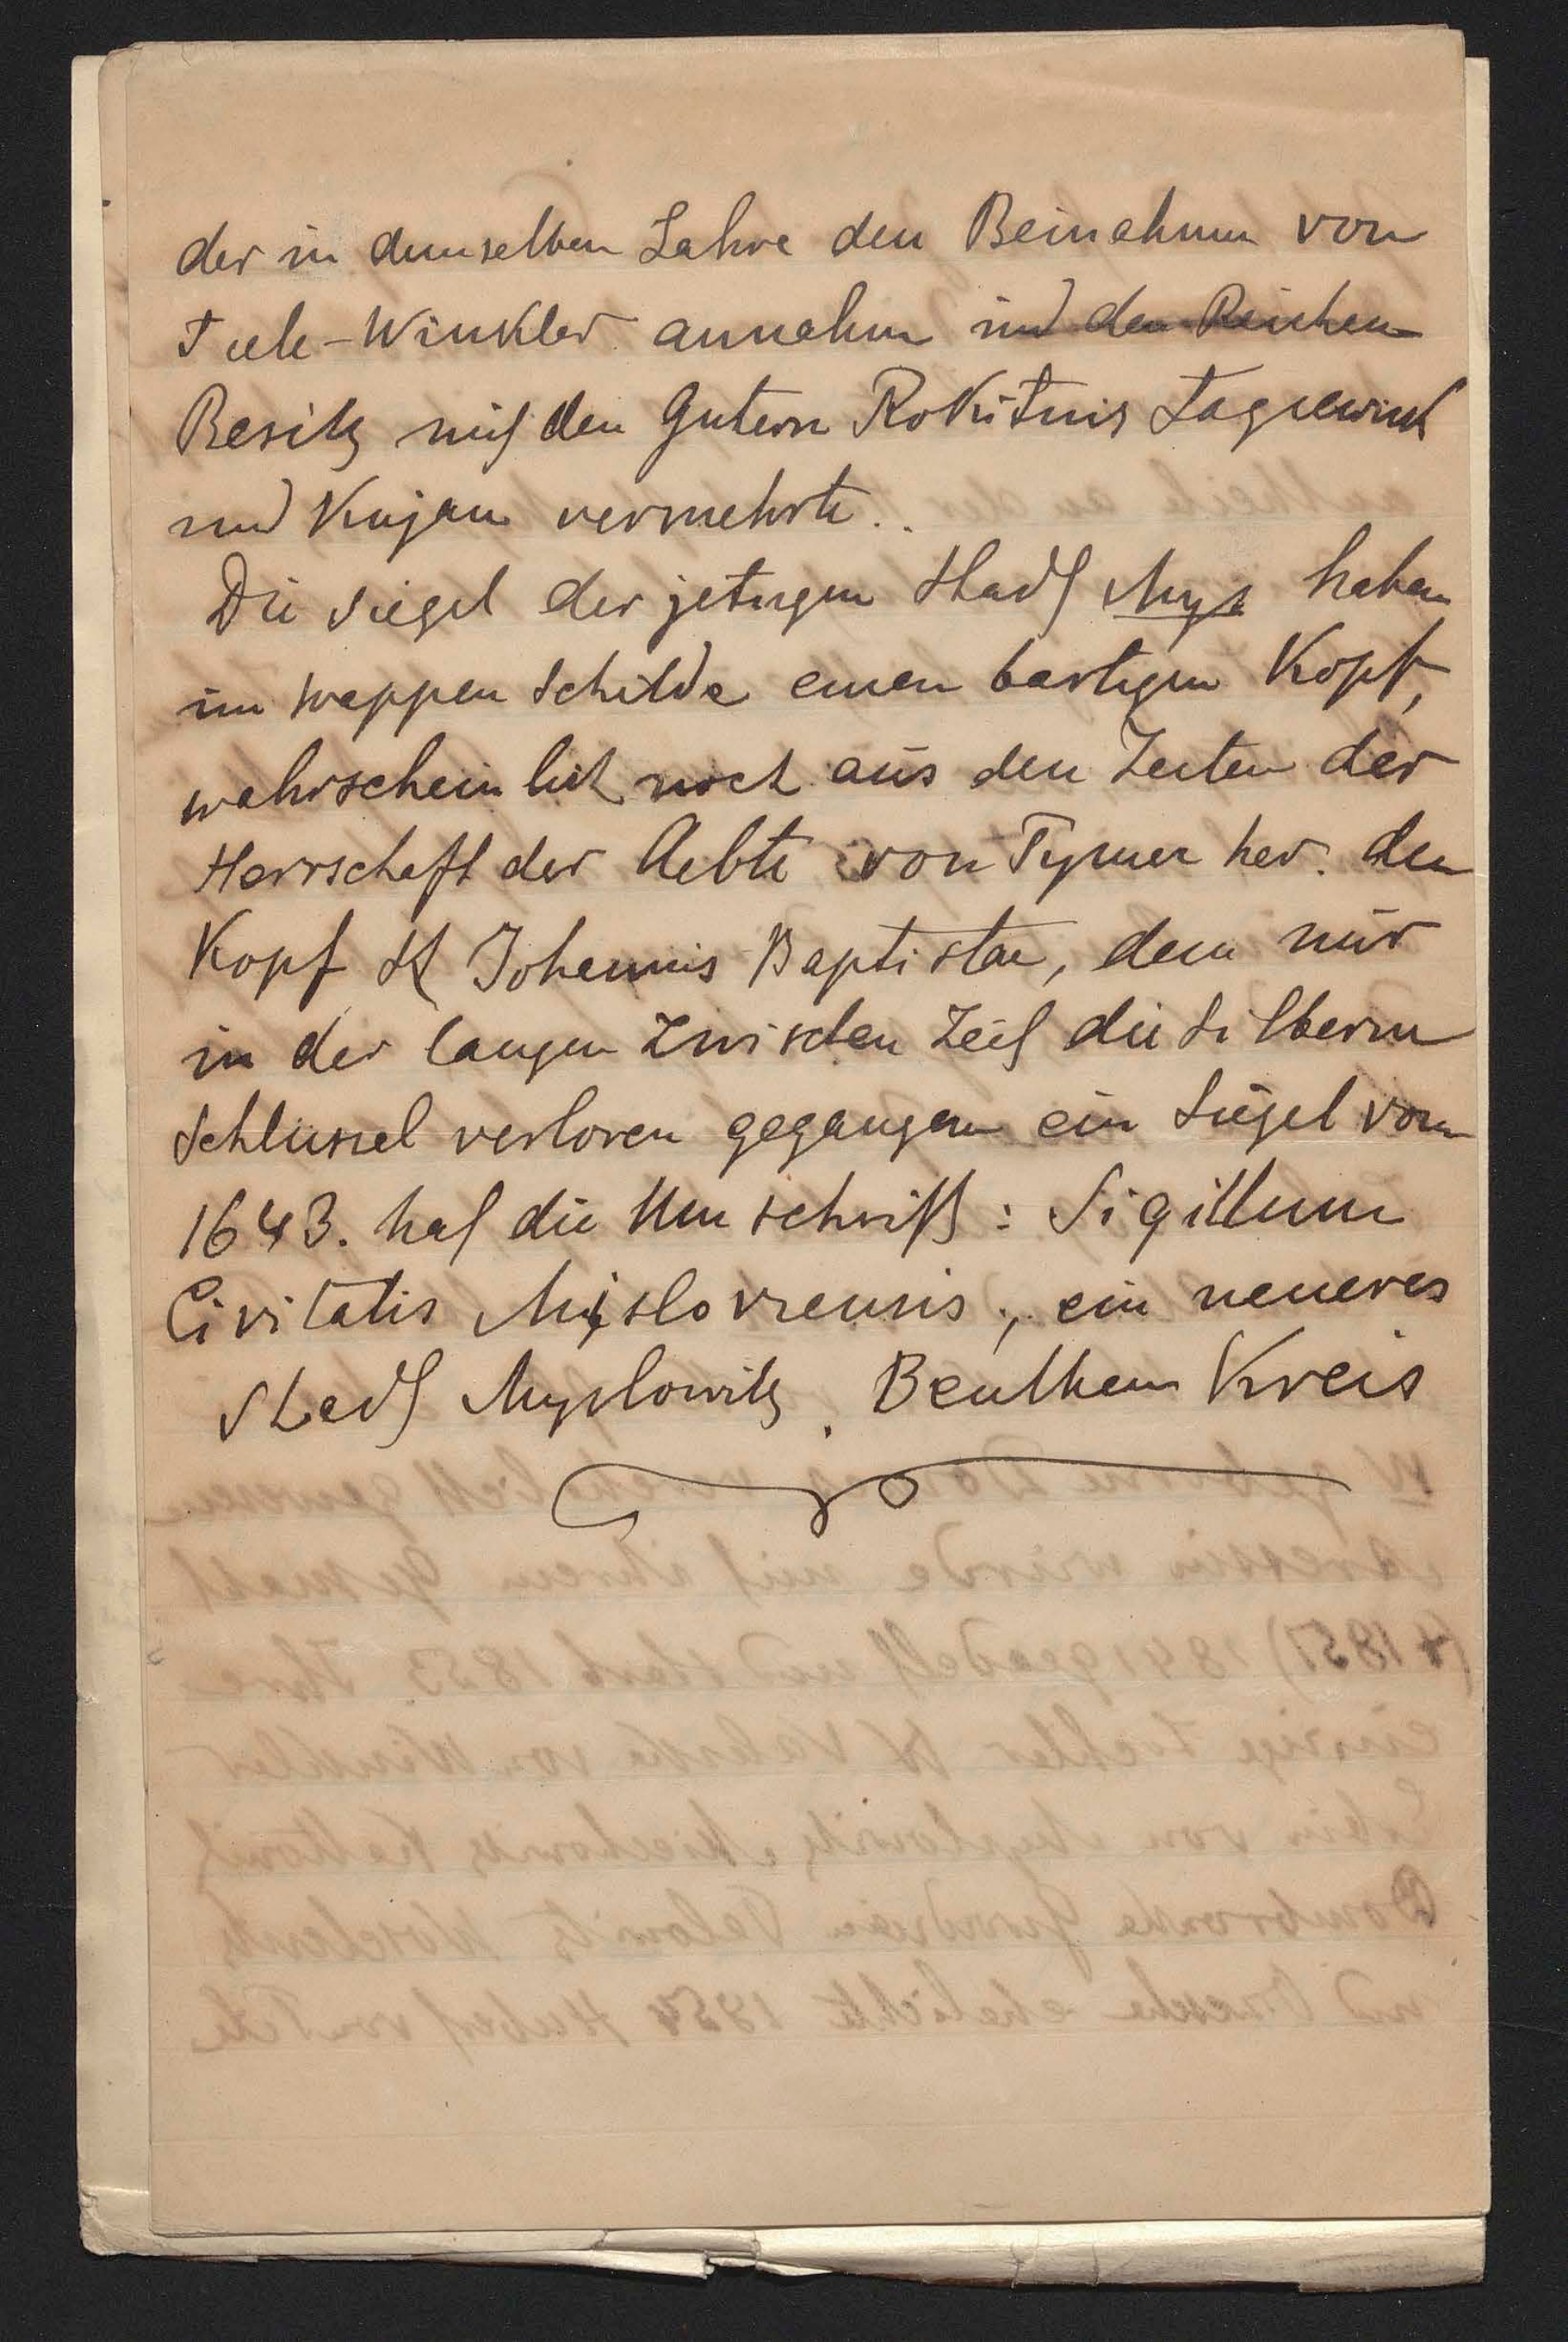 der in demselben Jahre den Beinahmen von
Tiele-Winkler annahm und den Reichen
Besitz mit den Gutern Rokitnis Lagiewnik
und Kujau vermehrte..
Die Siegel der jetzigen Stadt Mys haben
im Wappen Schilde einen bartigen Kopf,
wahrscheinlich noch aus den Zeiten der
Herrschaft der Aebte von Tyniec her. den
Kopf St Johannis Baptistae, dem nur
in der langen Zwischen Zeit die Silbernen
Schlüssel verloren gegangen ein Siegel vom
1643. hat die Umschrift: Sigillum
Civitatis Misloviensis, ein neueres
Stadt Myslowitz. Beuthen Kreis